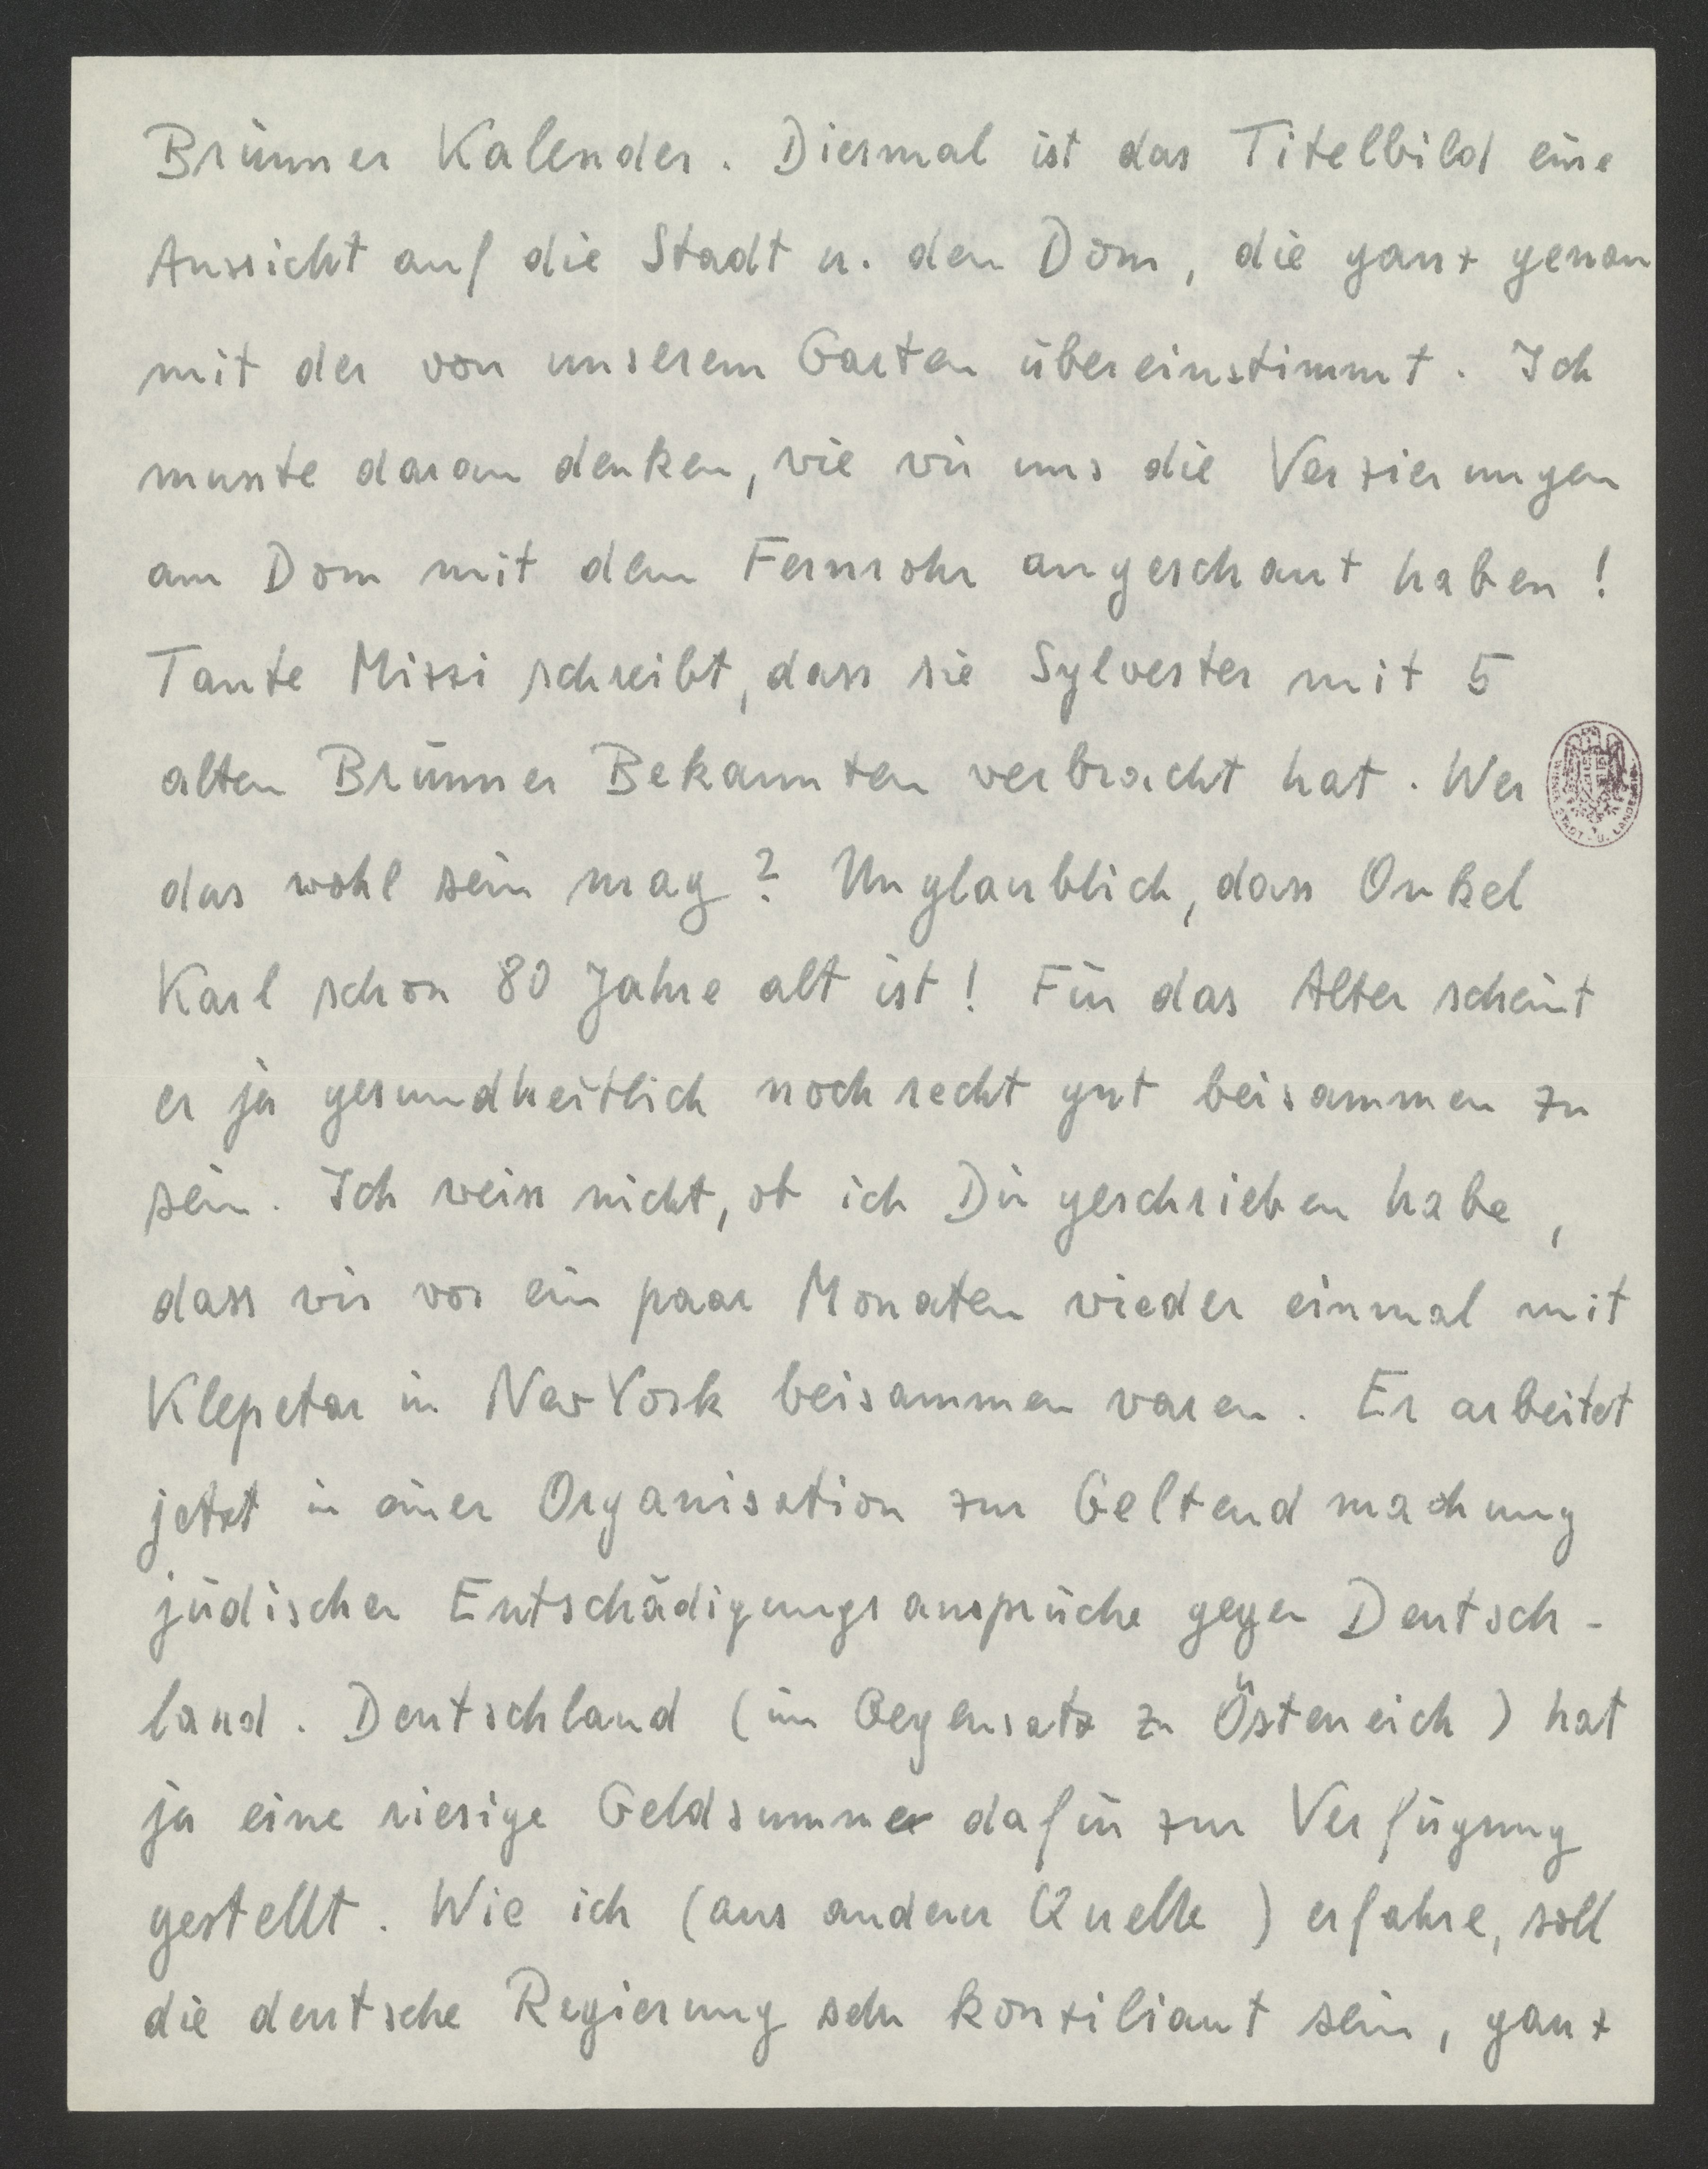 Brünner Kalender. Diesmal ist das Titelbild eine
Aussicht auf die Stadt u. den Dom, die ganz genau
mit der von unserem Garten übereinstimmt. Ich
musste daran denken, wie wir uns die Verzierungen
am Dom mit dem Fernrohr angeschaut haben!
Tante Mizzi schreibt, dass sie Sylvester mit 5
alten Brünner Bekannten verbracht hat. Wer
das wohl sein mag? Unglaublich, dass Onkel
Karl schon 80 Jahre alt ist! Für das Alter scheint
er ja gesundheitlich noch recht gut beisammen zu
sein. Ich weiss nicht, ob ich Dir geschrieben habe,
dass wir vor ein paar Monaten wieder einmal mit
Klepetar in New York beisammen waren. Er arbeitet
jetzt in einer Organisation zur Geltendmachung
jüdischer Entschädigungsansprüche gegen Deutsch-
land. Deutschland (im Gegensatz zu Österreich) hat
ja eine riesige Geldsumme dafür zur Verfügung
gestellt. Wie ich (aus anderer Quelle) erfahre, soll
die deutsche Regierung sehr konziliant sein, ganz